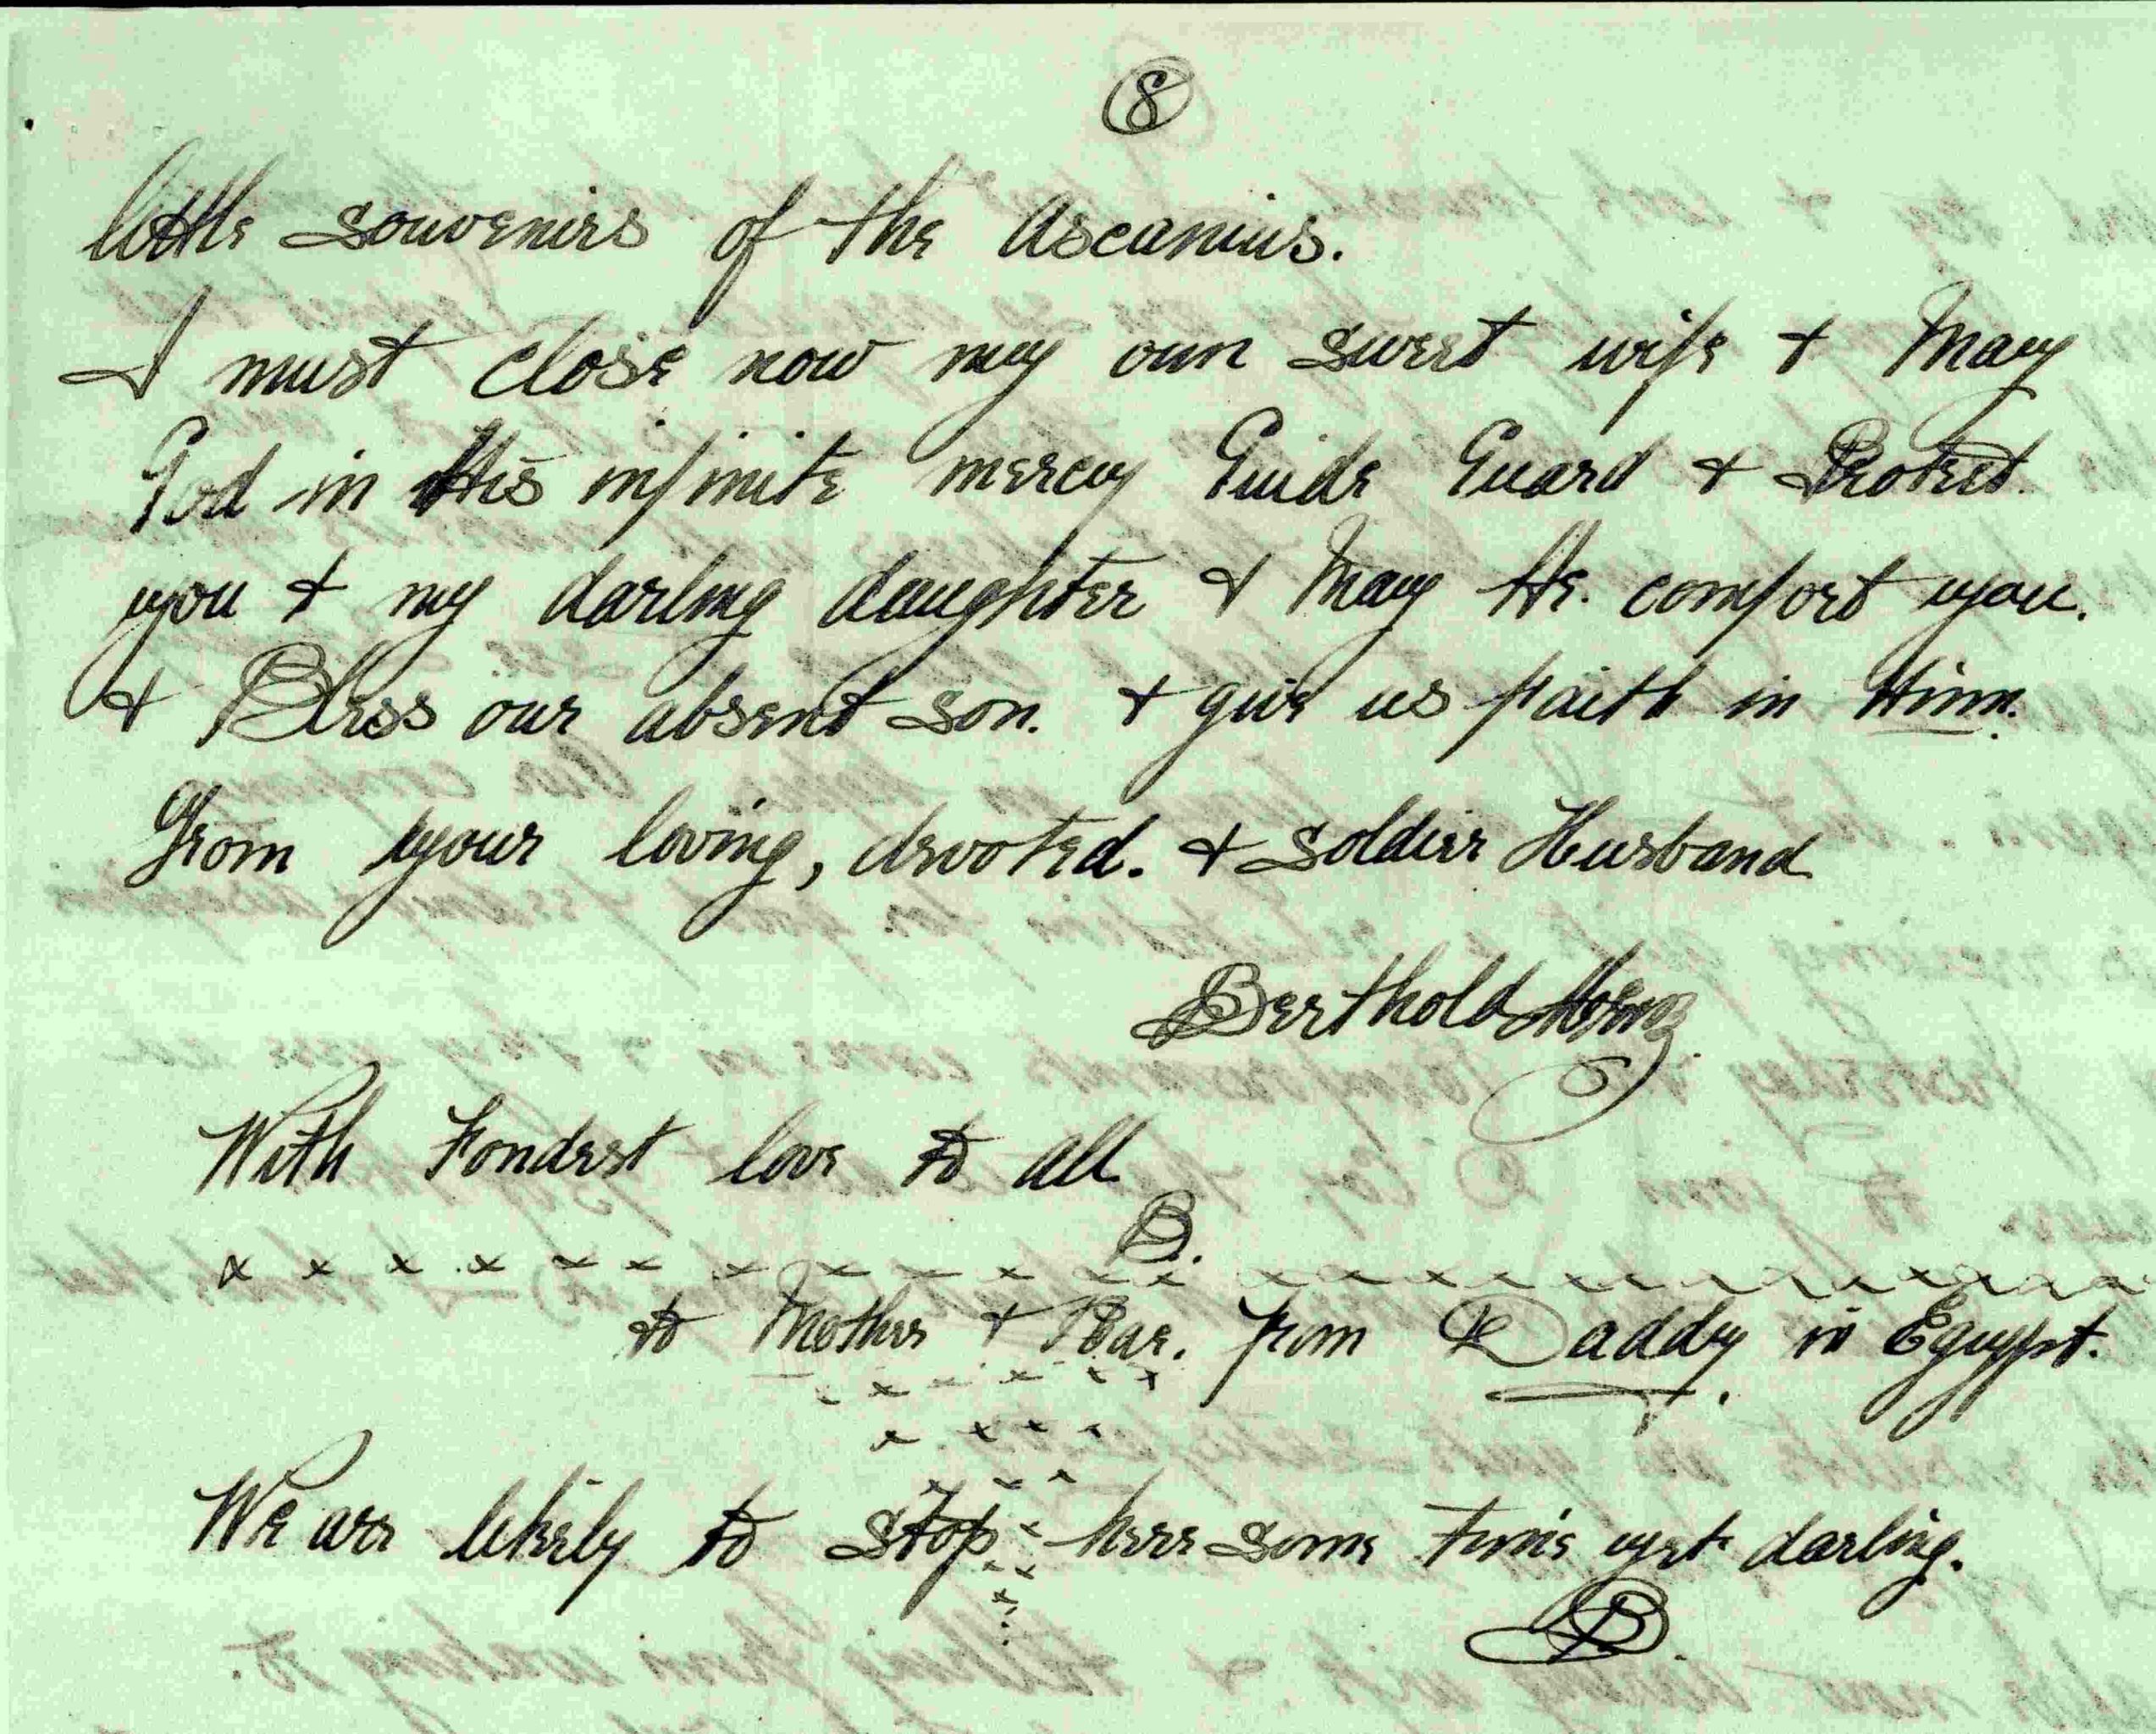 8
little souvenirs of the Ascanius.
I must close now my own sweet wife & May
God in His infinite mercy Guide Guard & Protect.
you & my darling daughter & May He. comfort you.
& Bless our absent son. & give us faith in Him.
From your loving, devoted. & soldier Husband
Berthold
With Fondest love to all
B.
x x x x x x x x x x x x x x x x x x x x x x x x
to Mother & Bae. from Daddy in Egypt.
x x x x x x
x x x x
x x x
We are likely to stop here some time yet darling.
B.